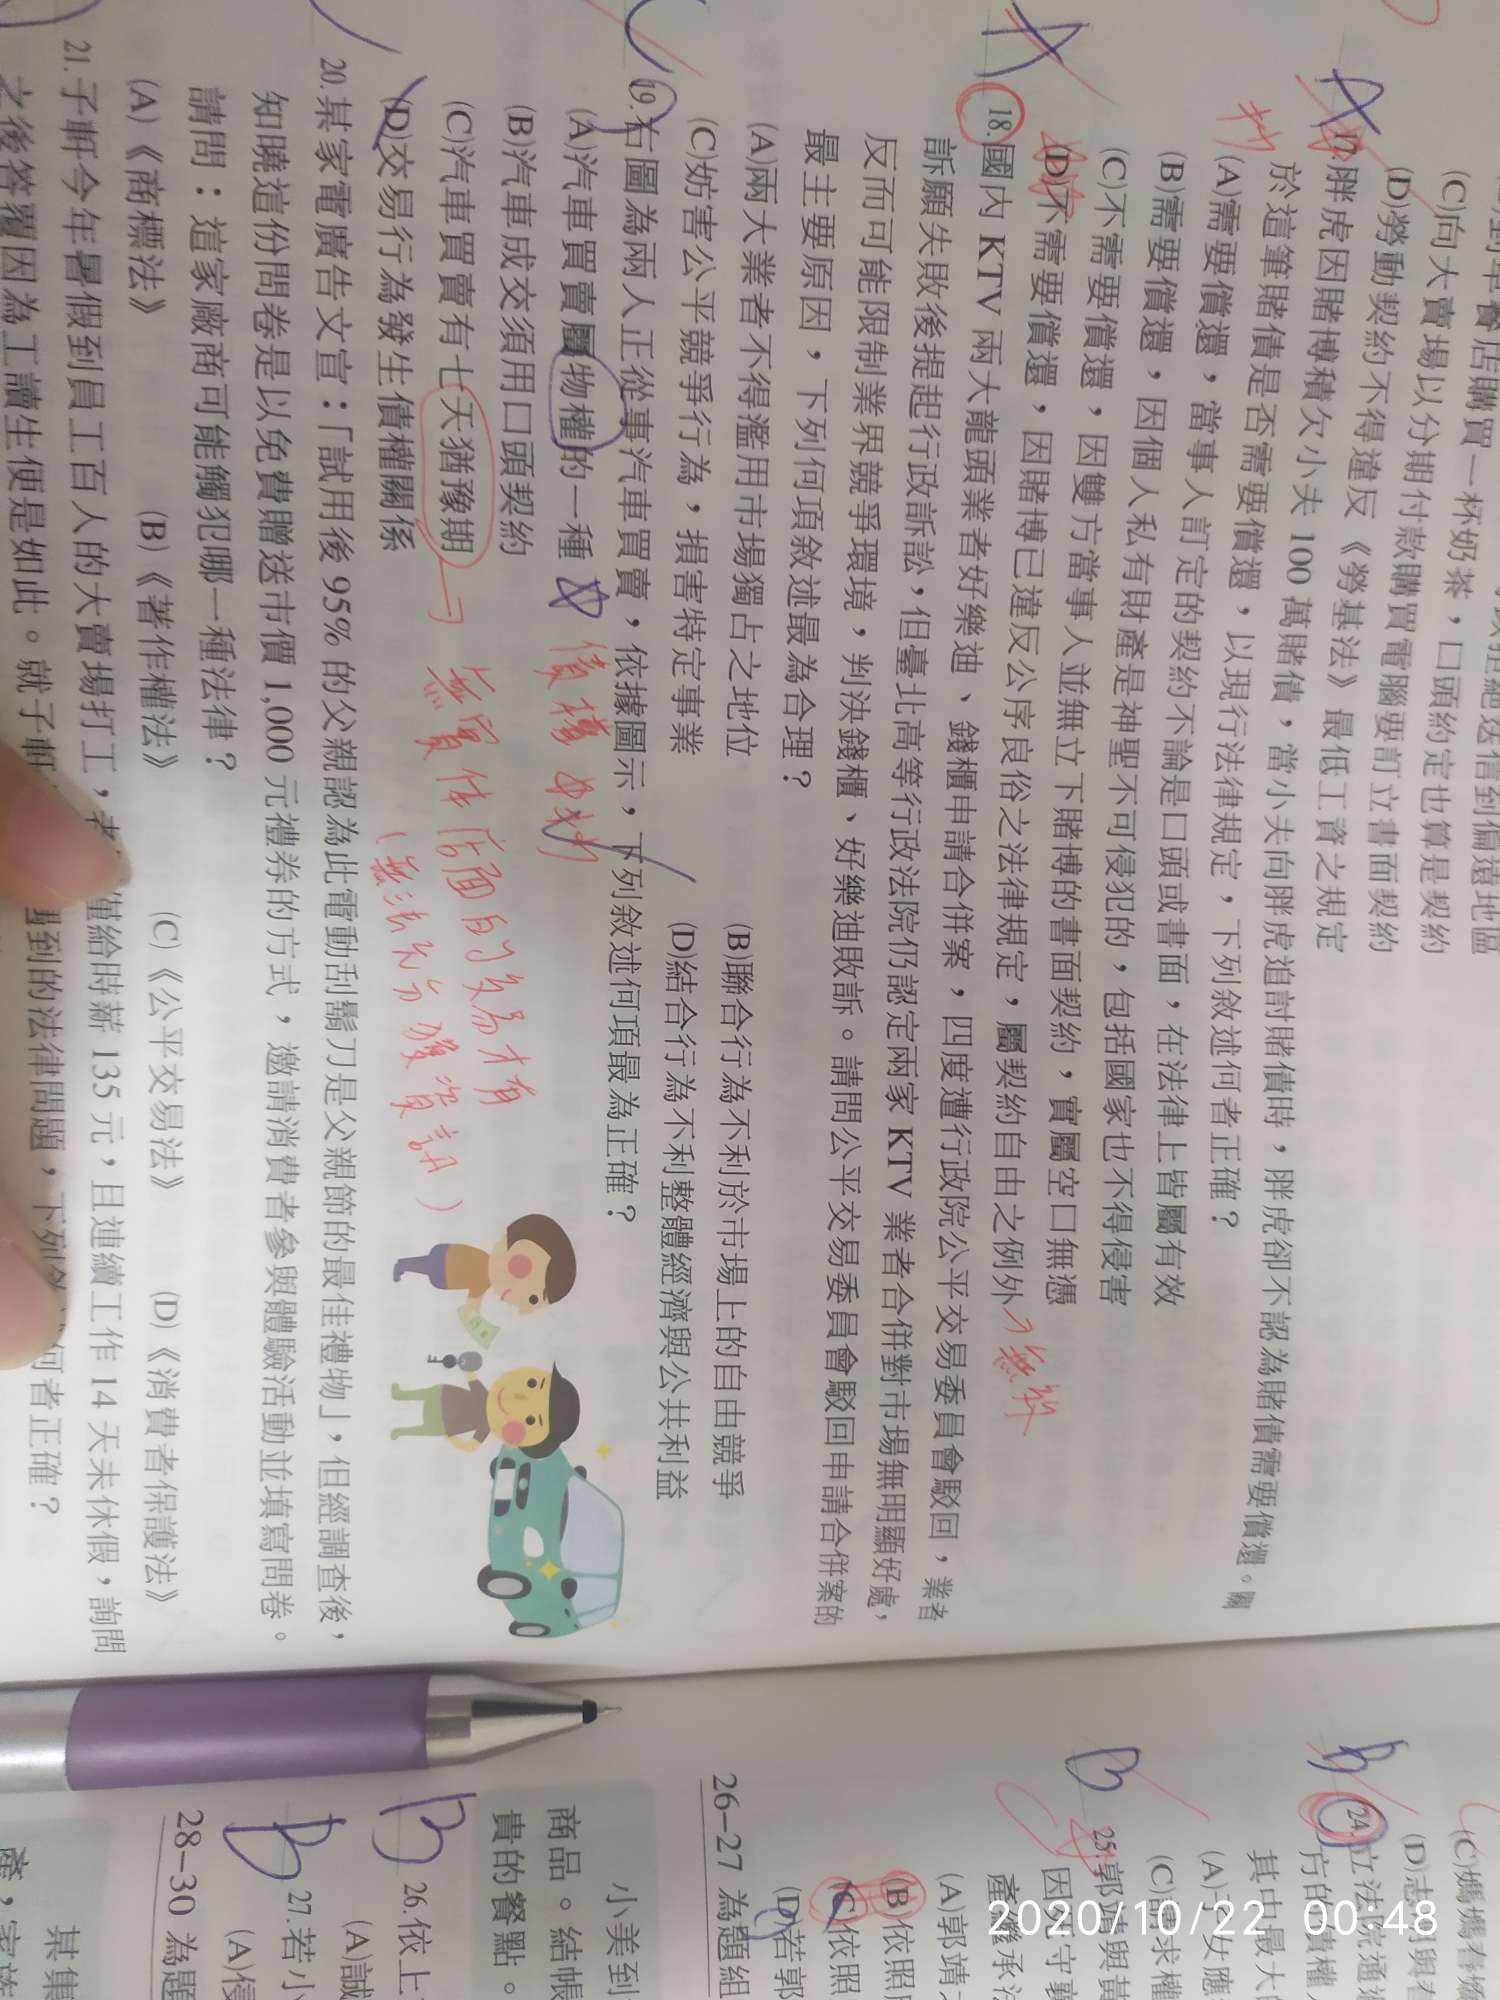 (C)向大賣場以分期付款購買電腦要訂立書面契約
(D)勞動契約不得違反《勞基法》最低工資之規定
17.胖虎因賭博積欠小夫 100 萬賭債，當小夫向胖虎追討賭債時，胖虎卻不認為賭債需要償還。關
於這筆賭債是否需要償還，以現行法律規定，下列敘述何者正確？
(A)需要償還，當事人訂定的契約不論是口頭或書面，在法律上皆屬有效
(B)需要償還，因個人私有財產是神聖不可侵犯的，包括國家也不得侵害
(C)不需要償還，因雙方當事人並無立下賭博的書面契約，實屬空口無憑
(D)不需要償還，因賭博已違反公序良俗之法律規定，屬契約自由之例外
18.國內 KTV 兩大龍頭業者好樂迪、錢櫃申請合併案，四度遭行政院公平交易委員會駁回，業者
訴願失敗後提起行政訴訟，但臺北高等行政法院仍認定兩家 KTV 業者合併對市場無明顯好處，
反而可能限制業界競爭環境，判決錢櫃、好樂迪敗訴。請問公平交易委員會駁回申請合併案的
最主要原因，下列何項敘述最為合理？
(A)兩大業者不得濫用市場獨占之地位 (B)聯合行為不利於市場上的自由競爭
(C)妨害公平競爭行為，損害特定事業 (D)結合行為不利整體經濟與公共利益
19.右圖為兩人正從事汽車買賣，依據圖示，下列敘述何項最為正確？
(A)汽車買賣屬物權的一種
債權
(B)汽車成交須用口頭契約
(C)汽車買賣有七天猶豫期
無實体店面的交易才有
(無法充分獲資訊)
(D)交易行為發生債權關係
20.某家電廣告文宣：「試用後 95% 的父親認為此電動刮鬍刀是父親節的最佳禮物」，但經調查後，
知曉這份問卷是以免費贈送市價 1,000 元禮券的方式，邀請消費者參與體驗活動並填寫問卷。
請問：這家廠商可能觸犯哪一種法律？
(A)《商標法》 (B)《著作權法》 (C)《公平交易法》 (D)《消費者保護法》
21.子軒今年暑假到員工百人的大賣場打工，僅給時薪 135 元，且連續工作 14 天未休假，詢問
之後答覆因為工讀生便是如此。就子軒遇到的法律問題，下列何者正確？
B
24.立法院通過
方的債權
其中最大
B
25.郭靖與黃
因死守襄
產繼承
(A)郭靖
(B)依照
(C)依照
(D)若郭
26–27 為題組
小美到
商品。結帳
貴的餐點。
B
26.依上
(A)誠
B
27.若小
(A)侵
28–30 為題
其集
產，家族
2020/10/22 00:48